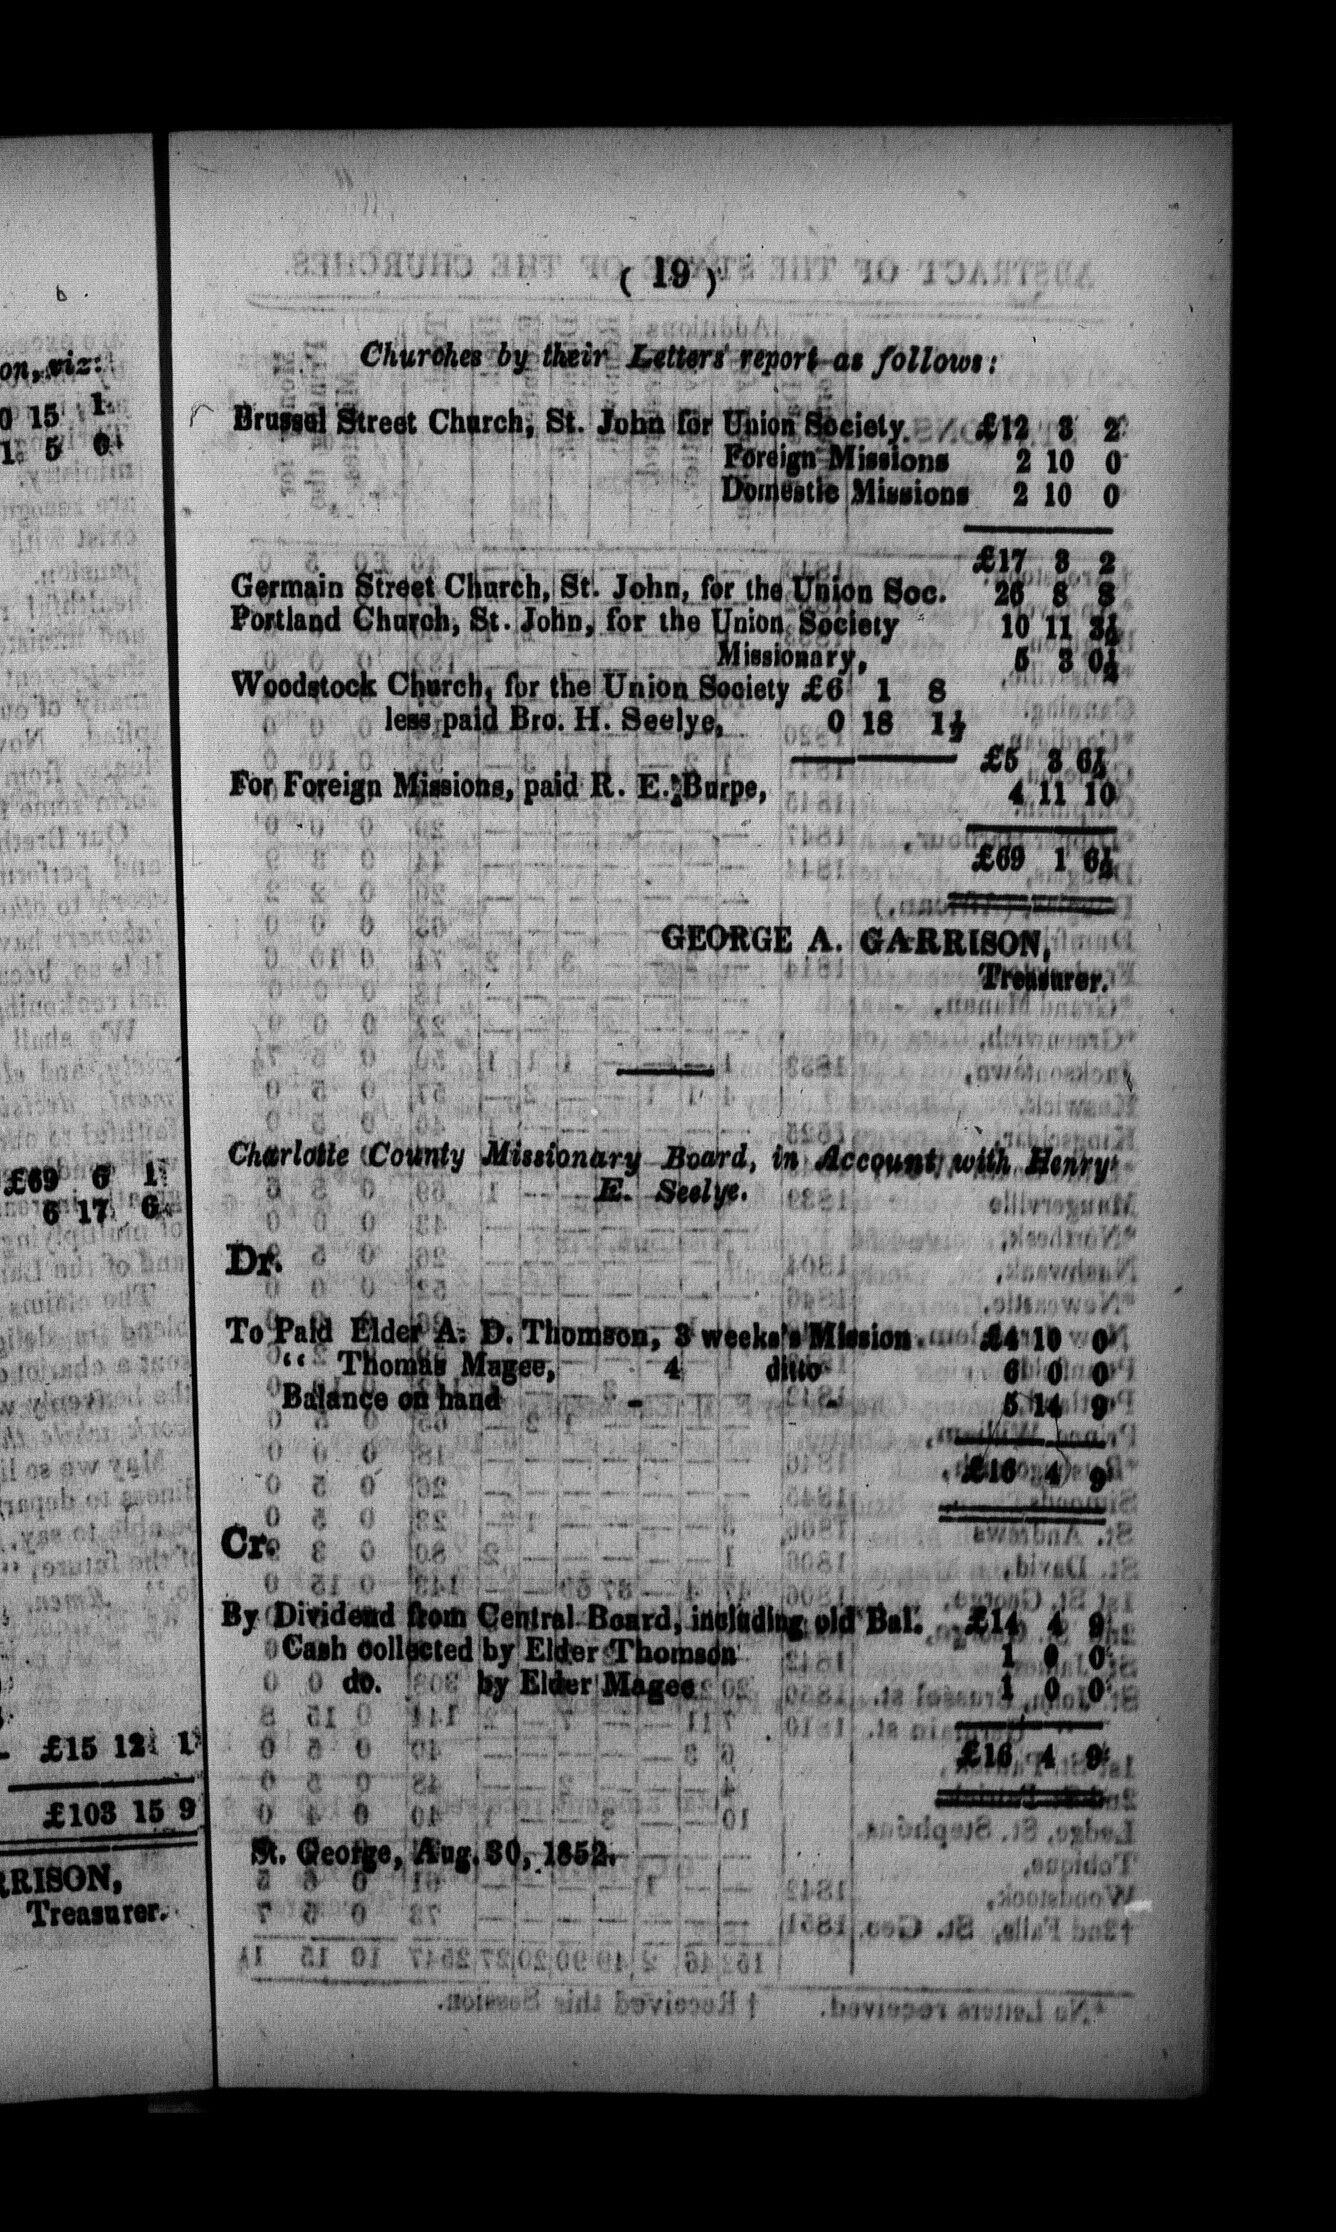 ( 19 )
Churches by their Letters report as follows:
Brussel Street Church, St. John for Union Society. £12 3 2
Foreign Missions 2 10 0
Domestic Missions 2 10 0
£17 3 2
Germain Street Church, St. John, for the Union Soc. 26 8 8
Portland Church, St. John, for the Union Society 10 11 3½
Missionary, 5 3 0½
Woodstock Church, for the Union Society £6 1 8
less paid Bro. H. Seelye, 0 18 1½
£5 3 6½
For Foreign Missions, paid R. E. Burpe, 4 11 10
£69 1 6½
GEORGE A. GARRISON,
Treasurer.
Charlotte County Missionary Board, in Account with Henry
E. Seelye.
Dr.
To Paid Elder A. D. Thomson, 3 weeks's Mission. £4 10 0
“ Thomas Magee, 4 ditto 6 0 0
Balance on hand - - 5 14 9
£16 4 9
Cr.
By Dividend from Central Board, including old Bal. £14 4 9
Cash collected by Elder Thomson 1 0 0
do. by Elder Magee 1 0 0
£16 4 9
St. George, Aug. 30, 1852.
on, viz:
0 15 1
1 5 0
£69 6 1
6 17 6
£15 12 1
£103 15 9
RRISON,
Treasurer.